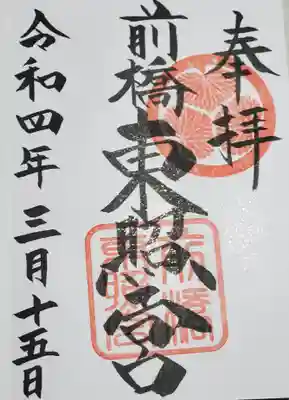 奉拝
前橋東照宮
令和四年三月十五日
前橋
東照宮